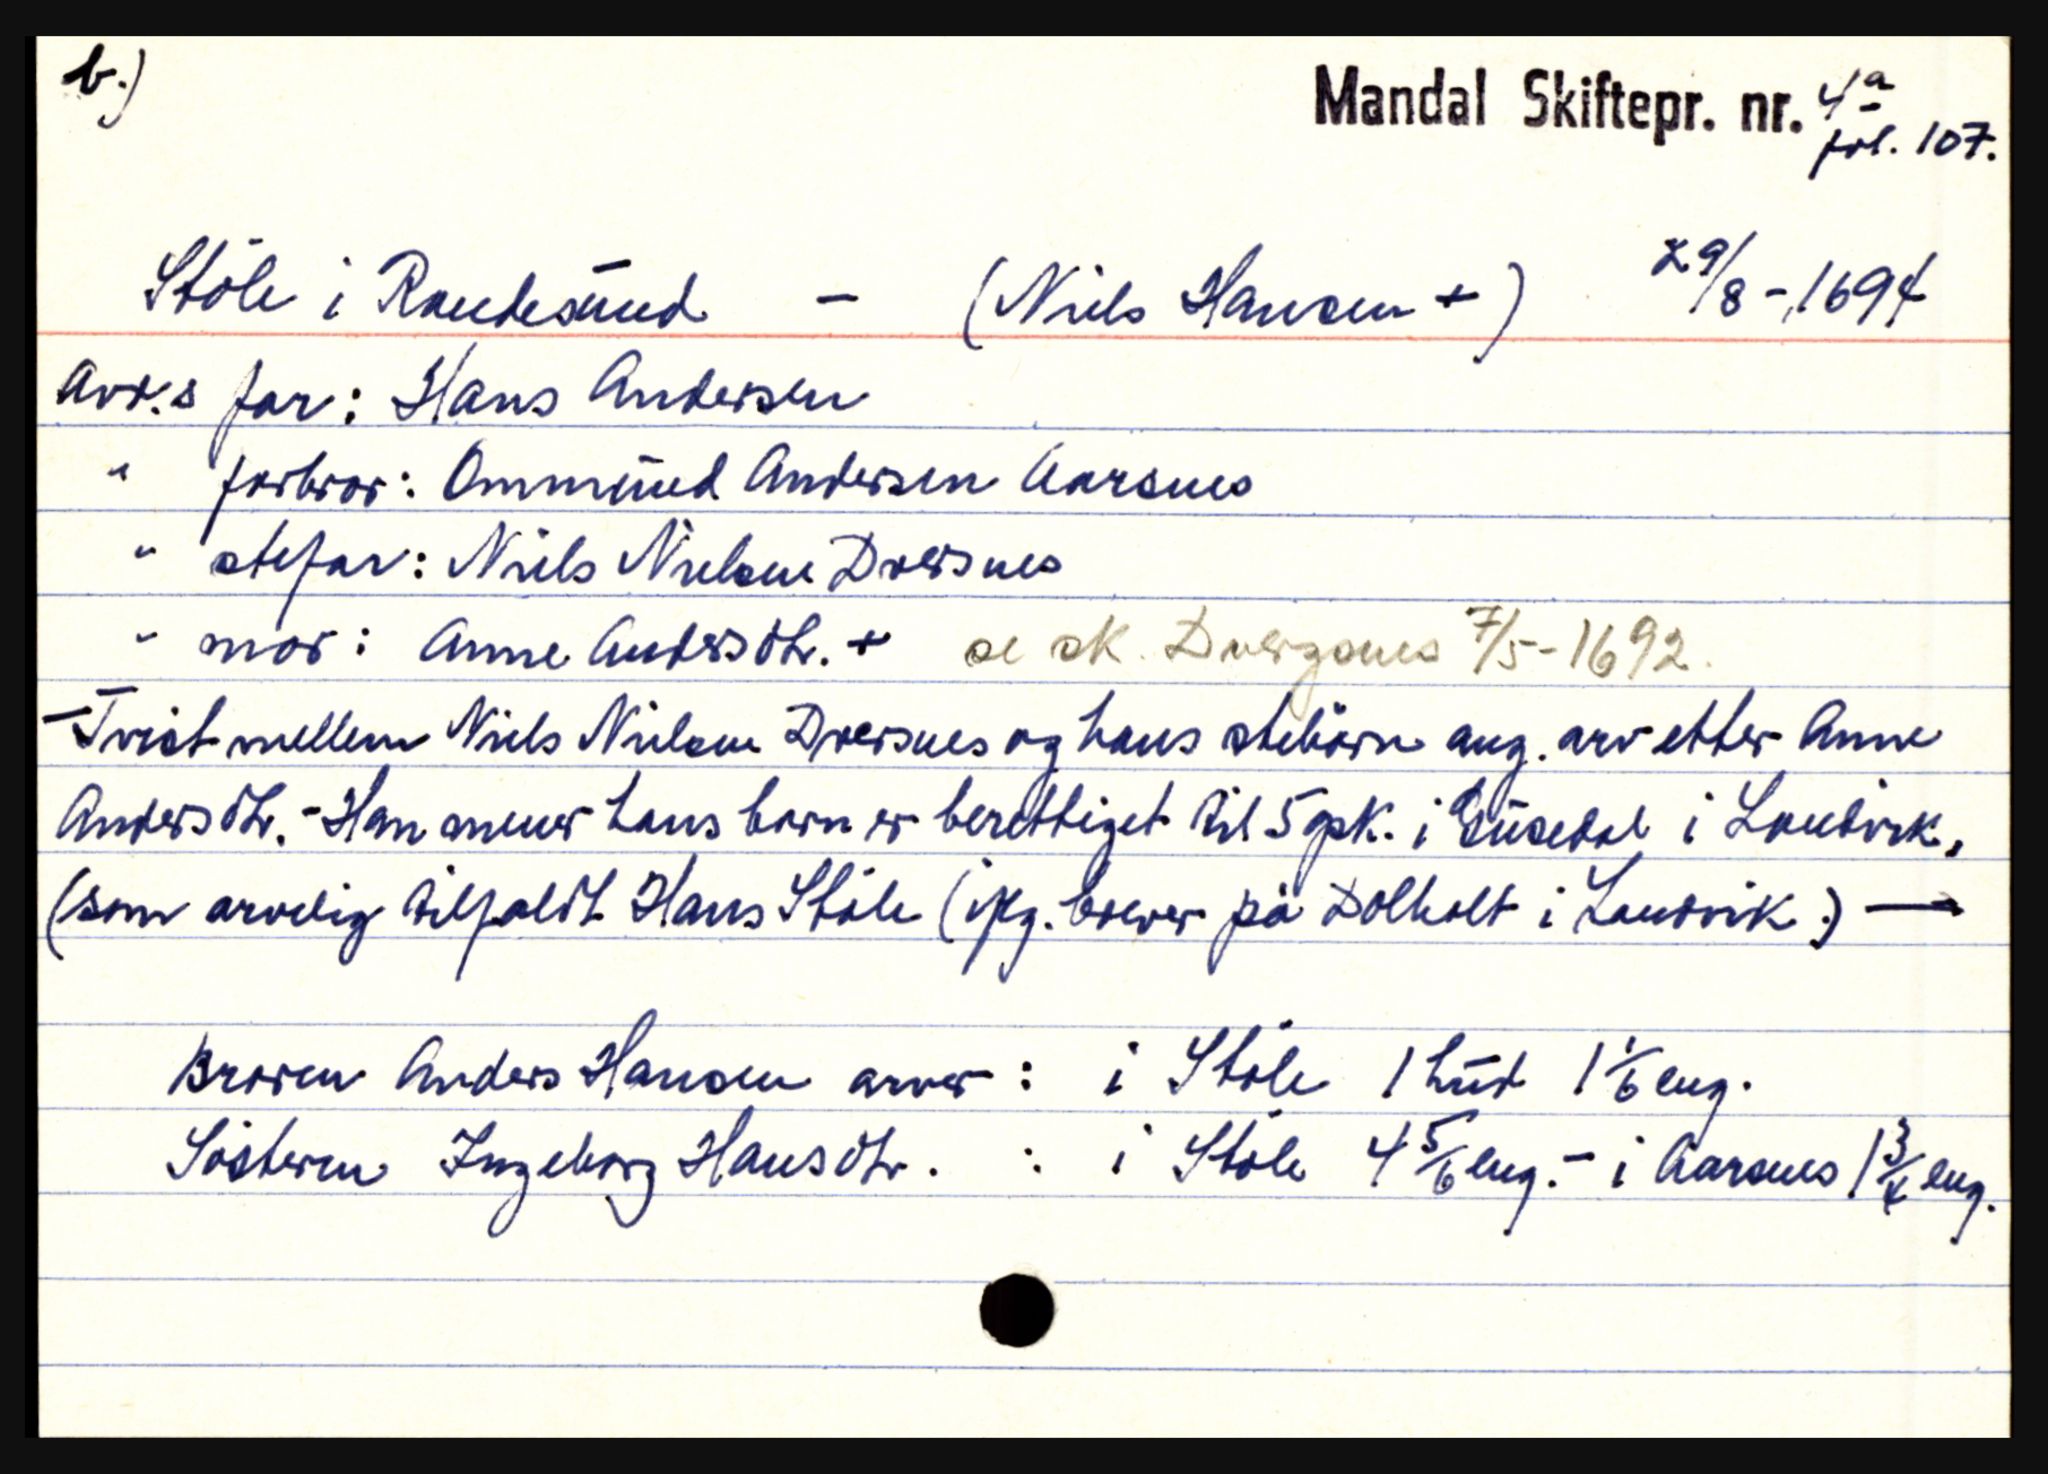 b.)
Mandal Skiftepr. nr. 4a
fol. 107.
Stöle i Randesund - (Niels Hansen +) 29/8-1694
Avd.s far: Hans Andersen
" farbror: Ommund Andersen Aarsnes
" stefar: Niels Nielsen Dversnes
" mor: Anne Andersdtr. + se sk. Dvergsnes 7/5-1692.
- Tvist mellem Niels Nielsen Dversnes og hans stebörn ang. arv etter Anne
Andersdtr. - Han mener hans barn er berettiget til 5 gpk. i i Landvik,
(som arvelig tilfaldt Hans Stöle (iflg. brever på Dolholt i Landvik.) —
Broren Anders Hansen arver : i Stöle 1 hud 1 1/6 eng.
Sösteren Ingeborg Hansdtr. : i Stöle 4 5/6 eng. - i Aarsnes 1 3/4 eng.